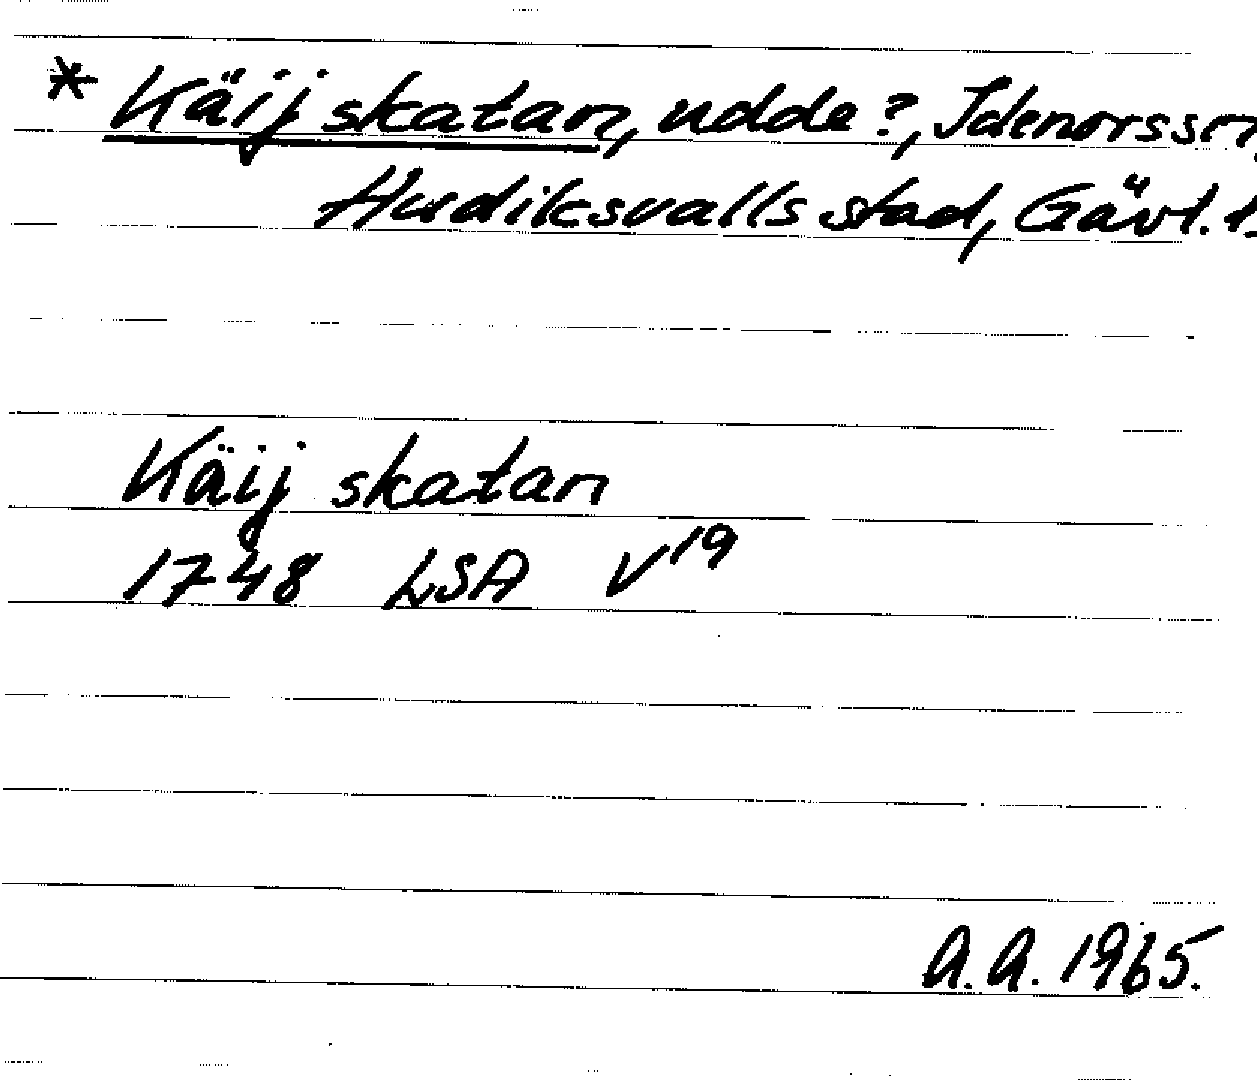 * Käij skatan, udde?, Idenorssn,
Hudiksvalls stad, Gävl. l.
Käij skatan
1748 LSA V19
A.A. 1965.